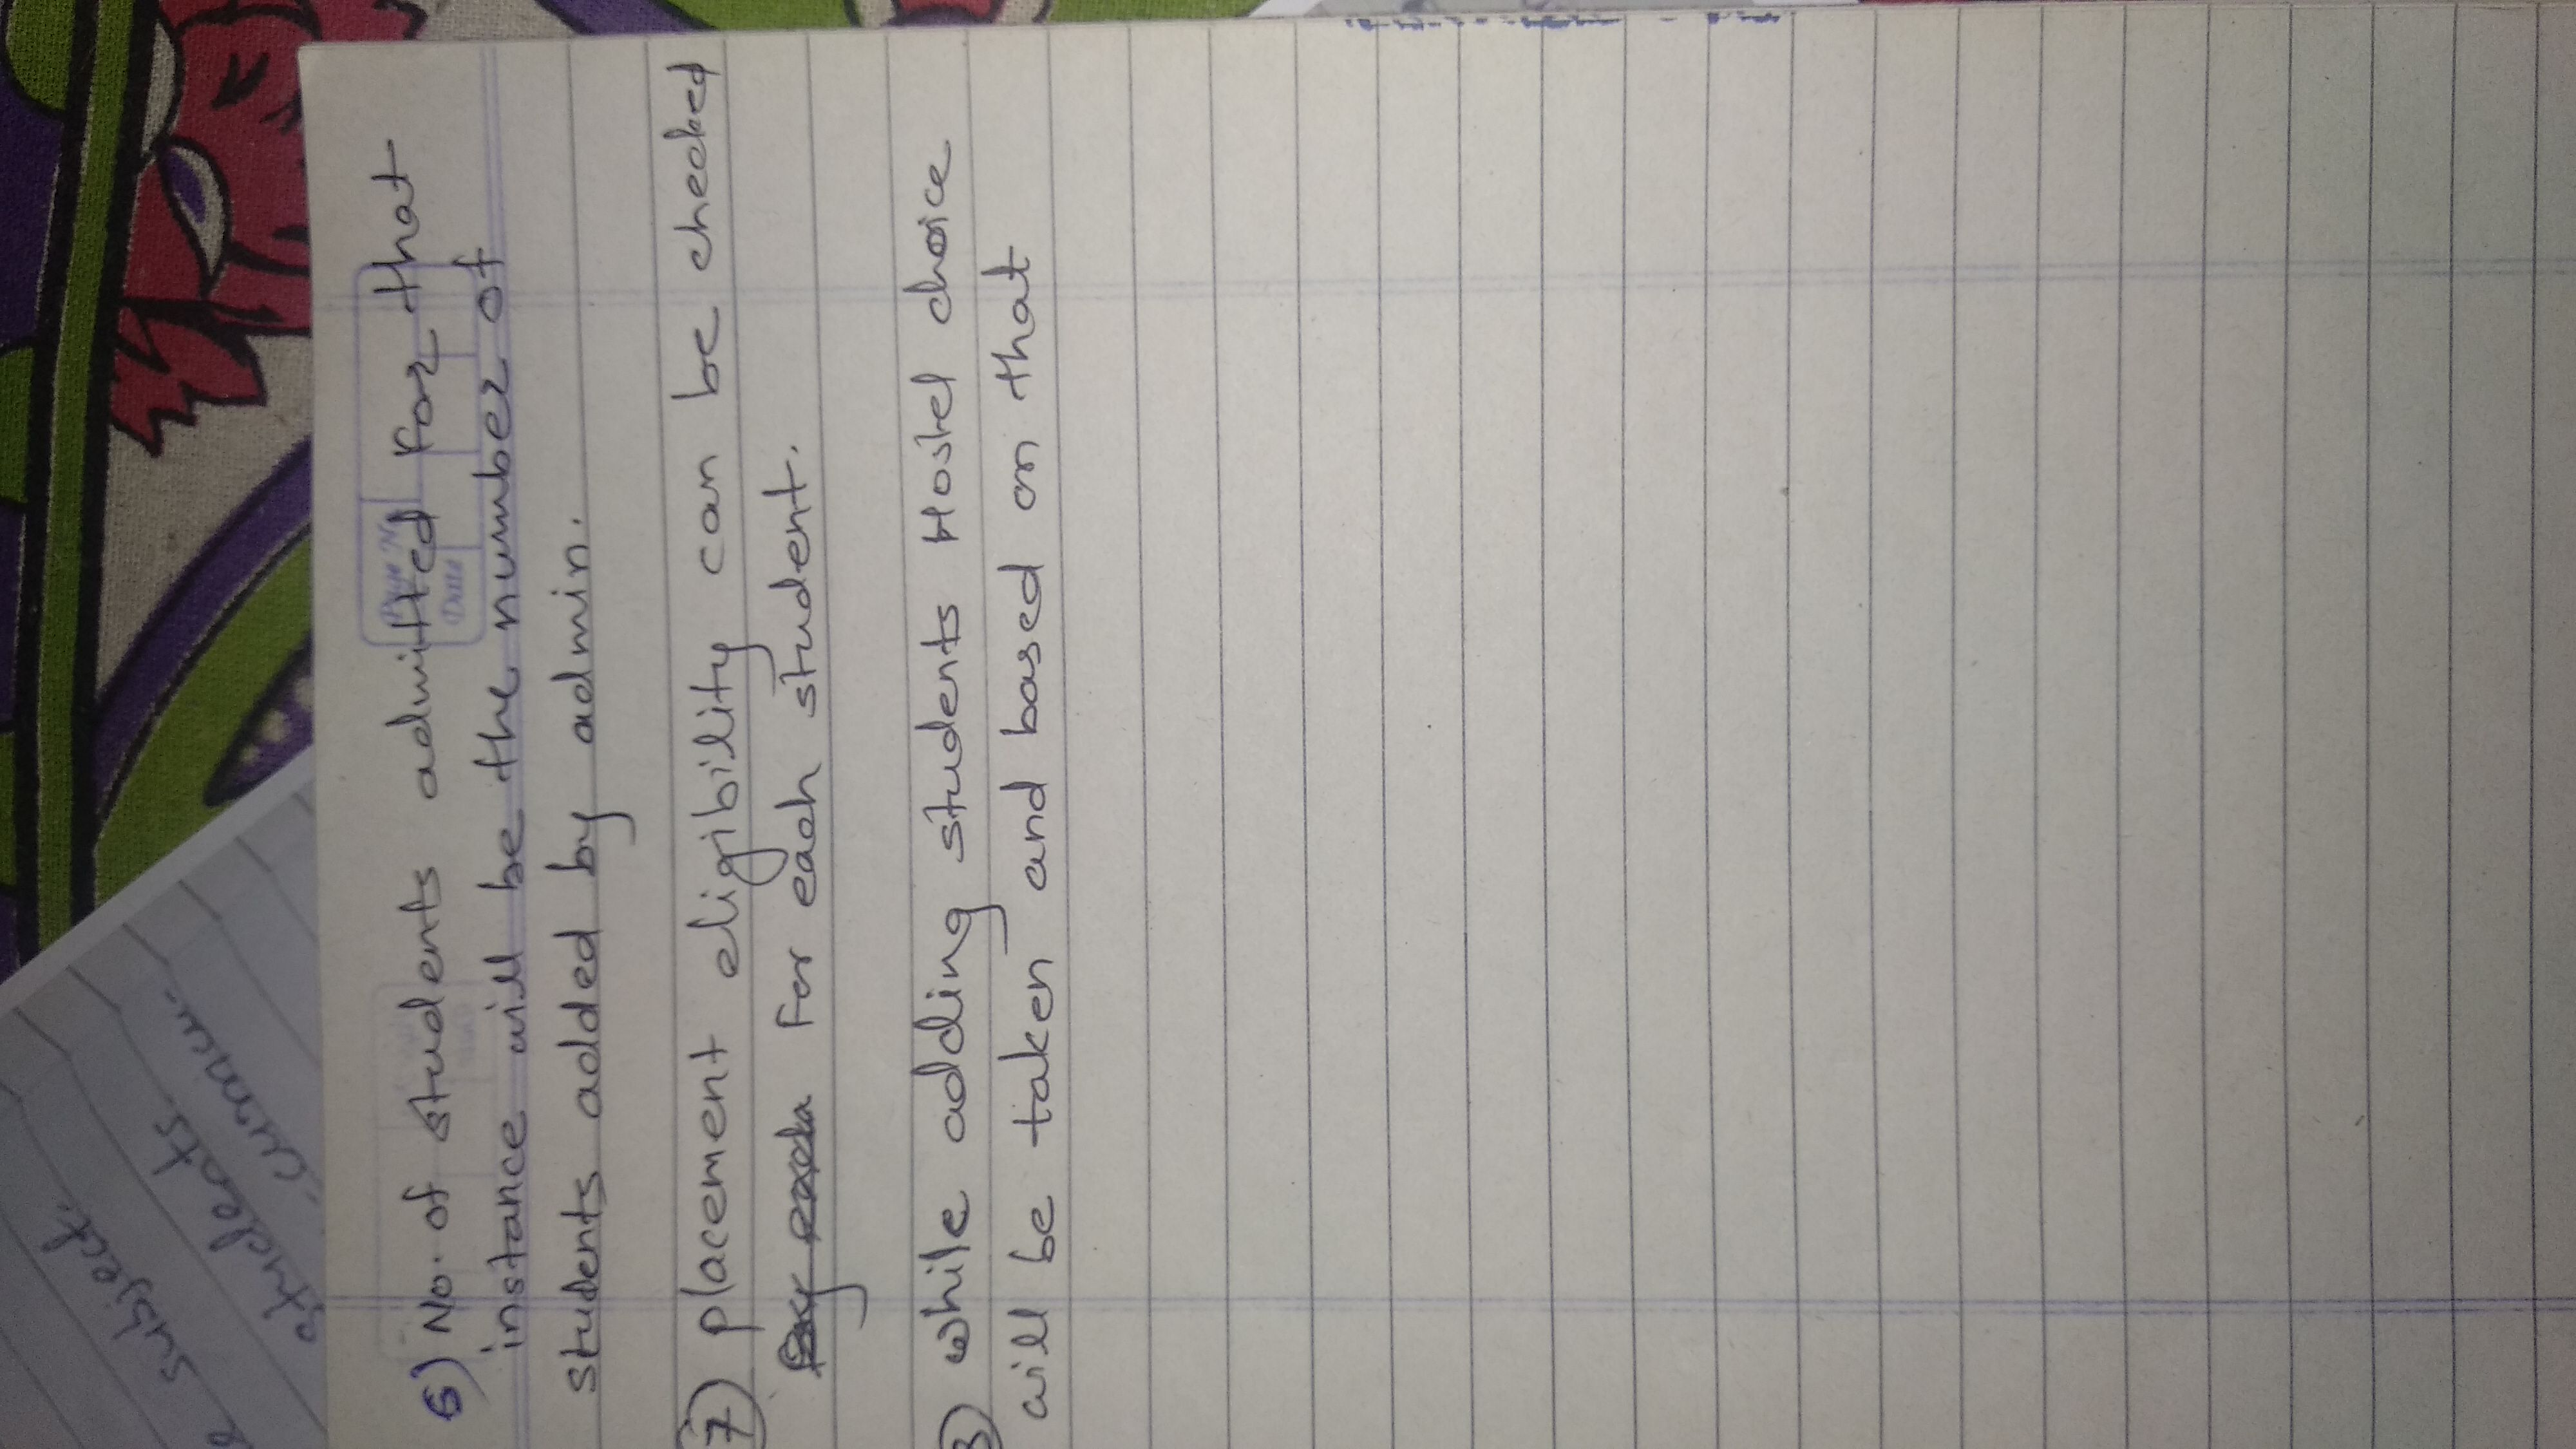 subject.
students
-curricu-
Page No
Date
6) No. of students admitted for that
instance will be the number of
students added by admin.
7) placement eligibility can be checked
for each student.
8) while adding students Hostel choice
will be taken and based on that